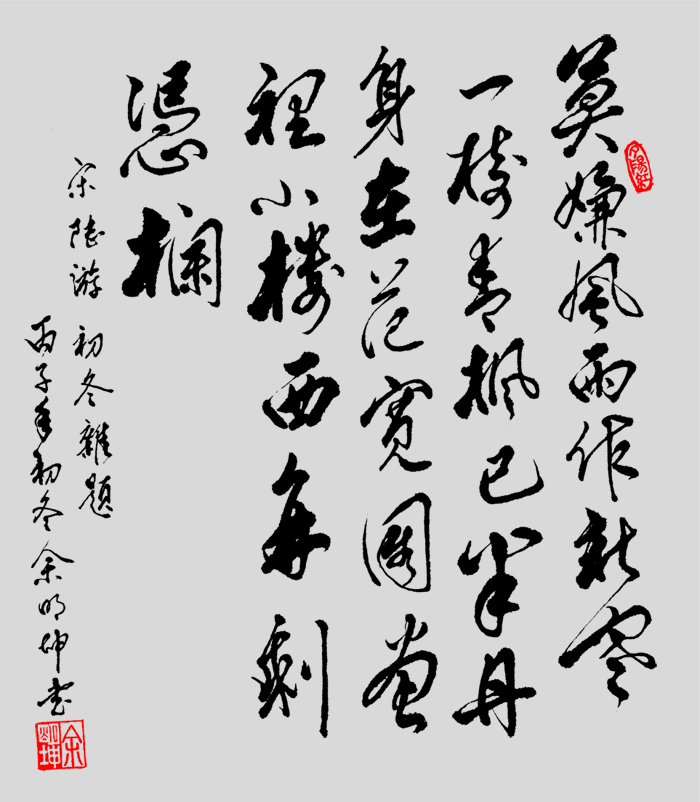 莫嫌風雨作新寒
一樹青楓已半丹
身在范寬圖畫
裡小樓西角剩
憑欄
宋陸游初冬雜題
丙子年初冬余明坤書
夕陽紅
余明坤